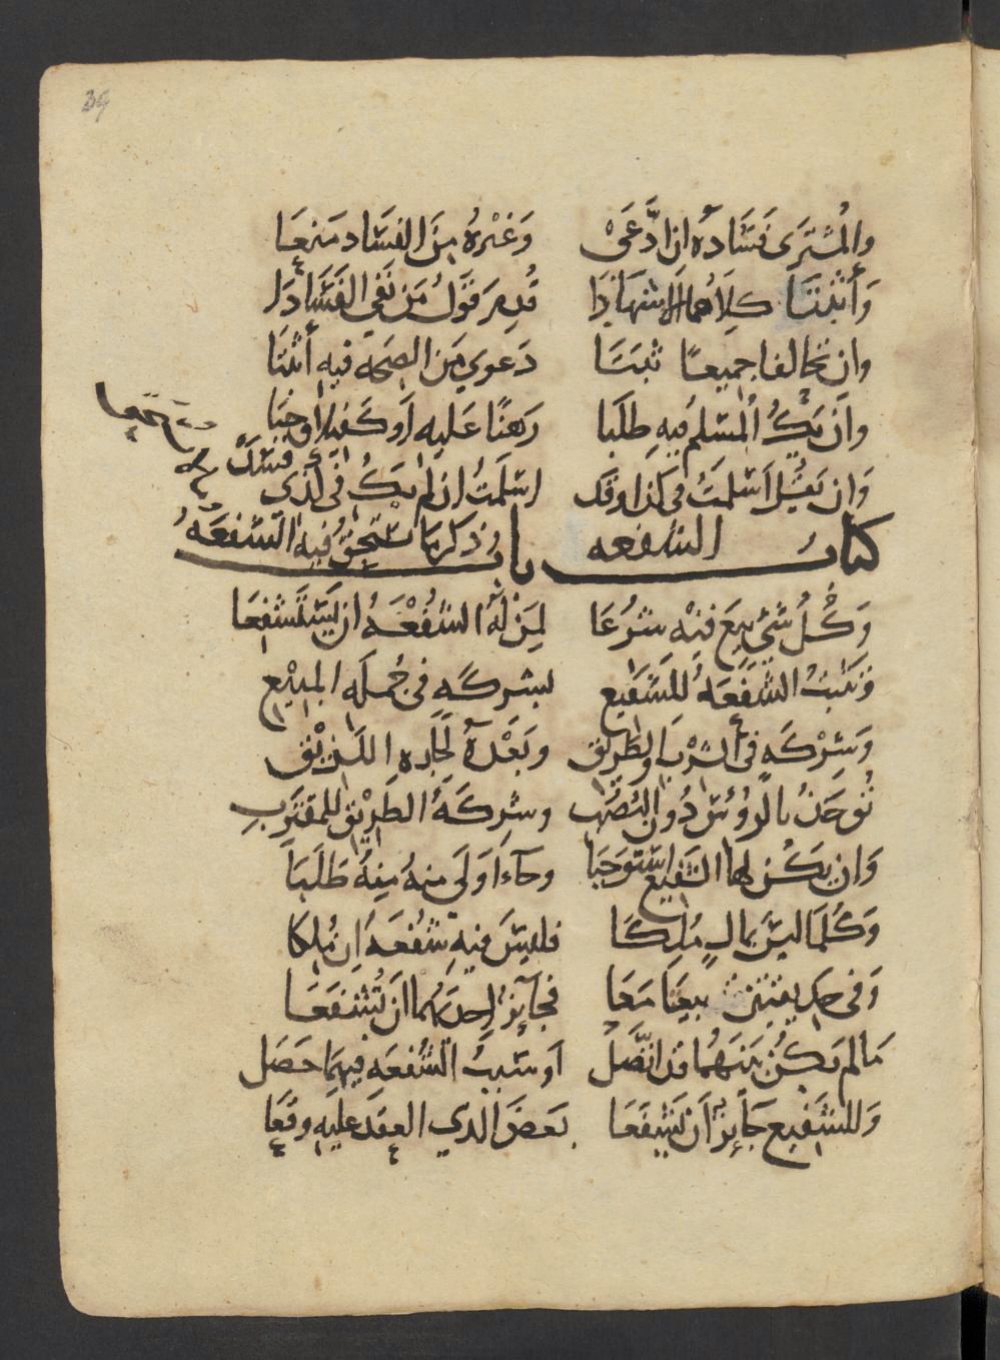 39
والمشترى فساده ان ادعى وغيره من الفساد منعا
وأثبتا كلاهما الاشهادا قدم قول من نفى الفسادا
وان تخالفا جميعا ثبتا دعوى من الصحة فيه أثبتا
وان يك المسلم فيه طلبا رهنا عليه او كفيلا اوجبا
وان يقل اسلمت فى كذا وقد اسلمت ان لم يك فى الذي فسد
كتاب الشفعه باب ذكر ما تستحق فيه الشفعه
وكل شي بيع فيه شرعا لمن له الشفعه ان يستشفعا
وتثبت الشفعه للشفيع لشركه فى جملة المبيع
وشركه فى الشرب والطريق وبعده لجاره اللزيق
توخذ بالرووس دون النصب وشركة الطريق للمقترب
وان يكن لها الشفيع استوجبا وجاء اولى منه منه طلبا
وكلما ليس بمال ملكا فليس فيه شفعه ان ملكا
وفى بيعا معا فجايز احدهما ان تشفعا
مالم يكن بينهما قد اتصل او سبب الشفعه فيهما حصل
وللشفيع جايز ان يشفعا بعض الذي العقد عليه وقعا